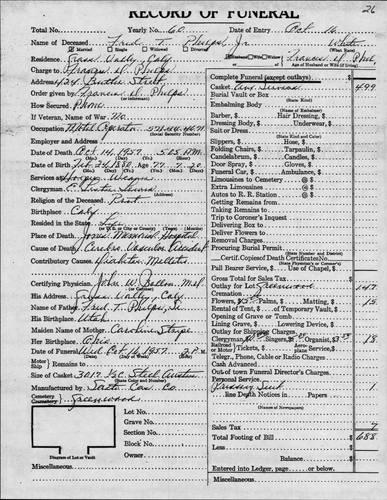 26
RECORD OF FUNERAL
Total No. Yearly No. 60 Date of Entry Oct. 16
Name of Deceased Fred T. Phelps, Jr. White
Married Single Widowed Divorced (What Race)
Residence Grass Valley, Calif. Husband Wife or Widow Francis D. Phelps
Charge to Francis D. Phelps
Address 424 Butler Street
Order given by Francis D. Phelps
(or informant)
How Secured Phone
If Veteran, Name of War No
Occupation Motel Operator
Employer and Address
Date of Death Oct. 14, 1957 5:25 P.M.
(Mo.) (Day) (Yr.) (Hour)
Date of Birth Feb. 24, 1880 Age 77 7 20
Services at
Clergyman
Religion of the Deceased Prot.
Birthplace
Resided in the State Life
(U.S. or City or County)
Place of Death Jones Memorial Hospital
Cause of Death Cerebro Vascular Accident
Contributory Causes Diabetes Mellitus
Certifying Physician John W. M.D.
His Address Grass Valley, Calif.
Name of Father Fred T. Phelps, Sr.
His Birthplace Utah
Maiden Name of Mother Caroline
Her Birthplace Ohio
Date of Funeral Wed. Oct. 16, 1957 2 P.M.
Motor Ship Remains to
Size of Casket
(State Color and Number)
Manufactured by Cas. Co.
Cemetery Crematory Greenwood
Lot No.
Grave No.
Section No.
Block No.
Owner
Diagram of Lot or Vault
Miscellaneous
Complete Funeral (except outlays) $
Casket 499
Burial Vault or Box
(State Kind)
Embalming Body
Barber, $ Hair Dressing, $
Dressing Body, $ Underwear, $
Suit or Dress
(State Kind and Color)
Slippers, $ Hose, $
Folding Chairs, $ Tarpaulin, $
Candelabrum, $ Candles, $
Door Spray, $ Gloves, $
Funeral Car, $ Ambulance, $
Limousines to Cemetery @ $
Extra Limousines @ $
Autos to R. R. Station @ $
Getting Remains from
Taking Remains to
Trip to Coroner's Inquest
Delivering Box to
Deliver Flowers to
Removal Charges
Procuring Burial Permit
(State Number and District)
Certif. Copies of Death Certificates No.
(State Physician's or Coroner's)
Pall Bearer Service, Use of Chapel, $
Gross Total for Sales Tax $
Outlay for Lot Greenwood 147
Cremation
Flowers, $15 Palms, $ Matting, $ 15
Rental of Tent, $ of Temporary Vault, $
Opening of Grave or Tomb
Lining Grave, $ Lowering Device, $
Outlay for Shipping Charges
Clergyman, $ Singers, $ Organist, $ 18
Railroad or Motor Tickets, $ Aeroplane Service, $
Telegr., Phone, Cable or Radio Charges
Cash Advanced
Out of town Funeral Director's Charges
Personal Service
1
line Death Notices in Papers
(Names of Newspapers)
Sales Tax 7
Total Footing of Bill $ 688
Less $
Balance $
Entered into Ledger, page or below.
Miscellaneous